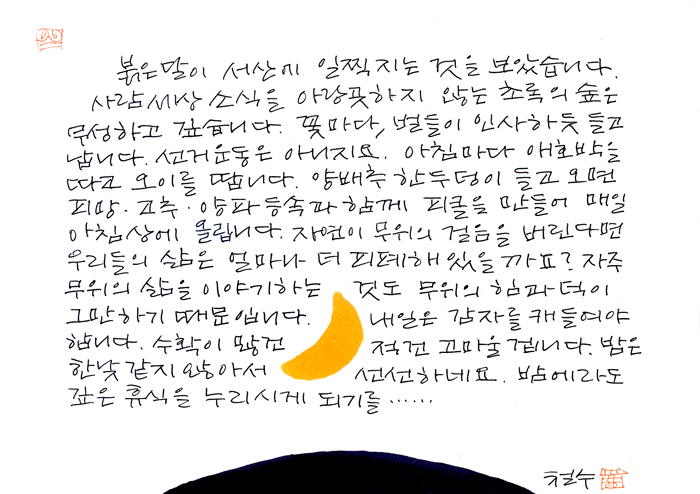 붉은달이 서산에 일찍 지는 것을 보았습니다.
사람세상 소식을 아랑곳하지 않는 초록의 숲은
무성하고 깊습니다. 꽃마다, 벌들이 인사하듯 들고
납니다. 선거운동은 아니지요. 아침마다 애호박을
따고 오이를 땁니다. 양배추 한두덩이 들고 오면
피망·고추·양파 등속과 함께 피클을 만들어 매일
아침상에 올립니다. 자연이 무위의 걸음을 버린다면
우리들의 삶은 얼마나 더 피폐해 있을까요? 자주
무위의 삶을 이야기하는 것도 무위의 힘과 덕이
그만하기 때문입니다. 내일은 감자를 캐들여야
합니다. 수확이 많건 적건 고마울 겁니다. 밤은
한낮 같지 않아서 선선하네요. 밤에라도
깊은 휴식을 누리시게 되기를……
철수